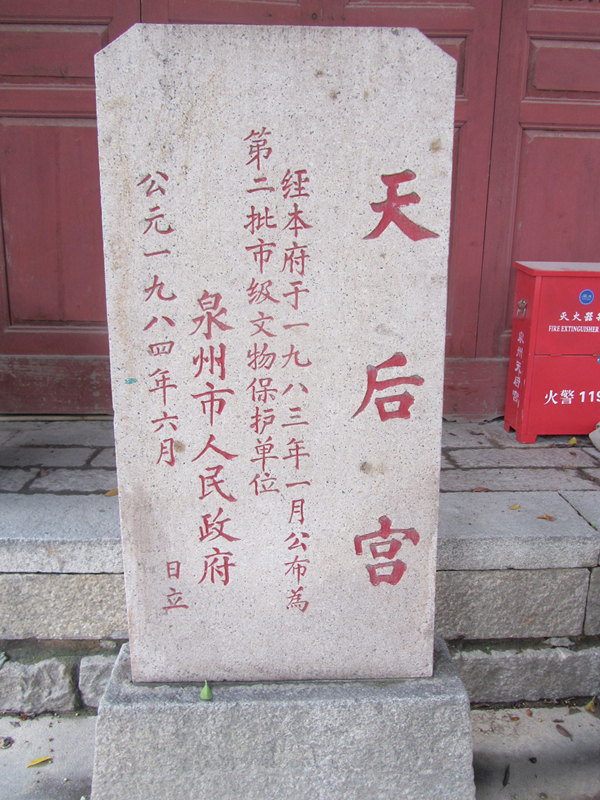 天后宫
经本府于一九八三年一月公布為
第二批市级文物保护单位
泉州市人民政府
公元一九八四年六月 日立
灭火器
FIRE EXTINGUISHER
火警 119
泉州天后宫